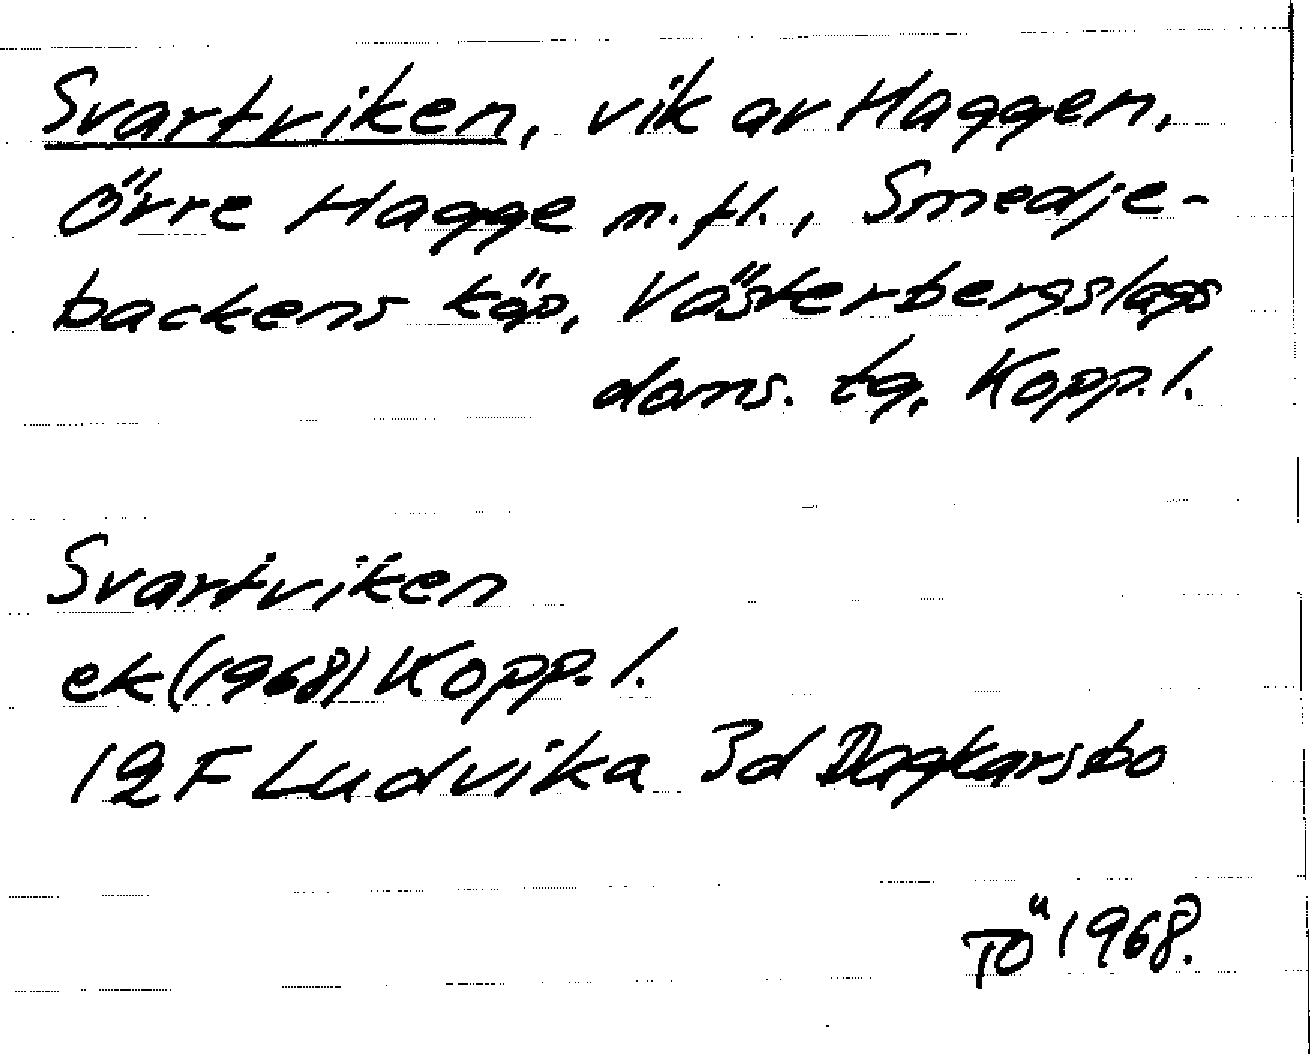 Svartviken, vik av Haggen,
Övre Hagge m.fl., Smedje-
backens köp, Västerbergslags
doms. tg, Kopp.l.
Svartviken
ek (1968) Kopp.l.
12 F Ludvika 3d Dagkarsbo
TÖ 1968.